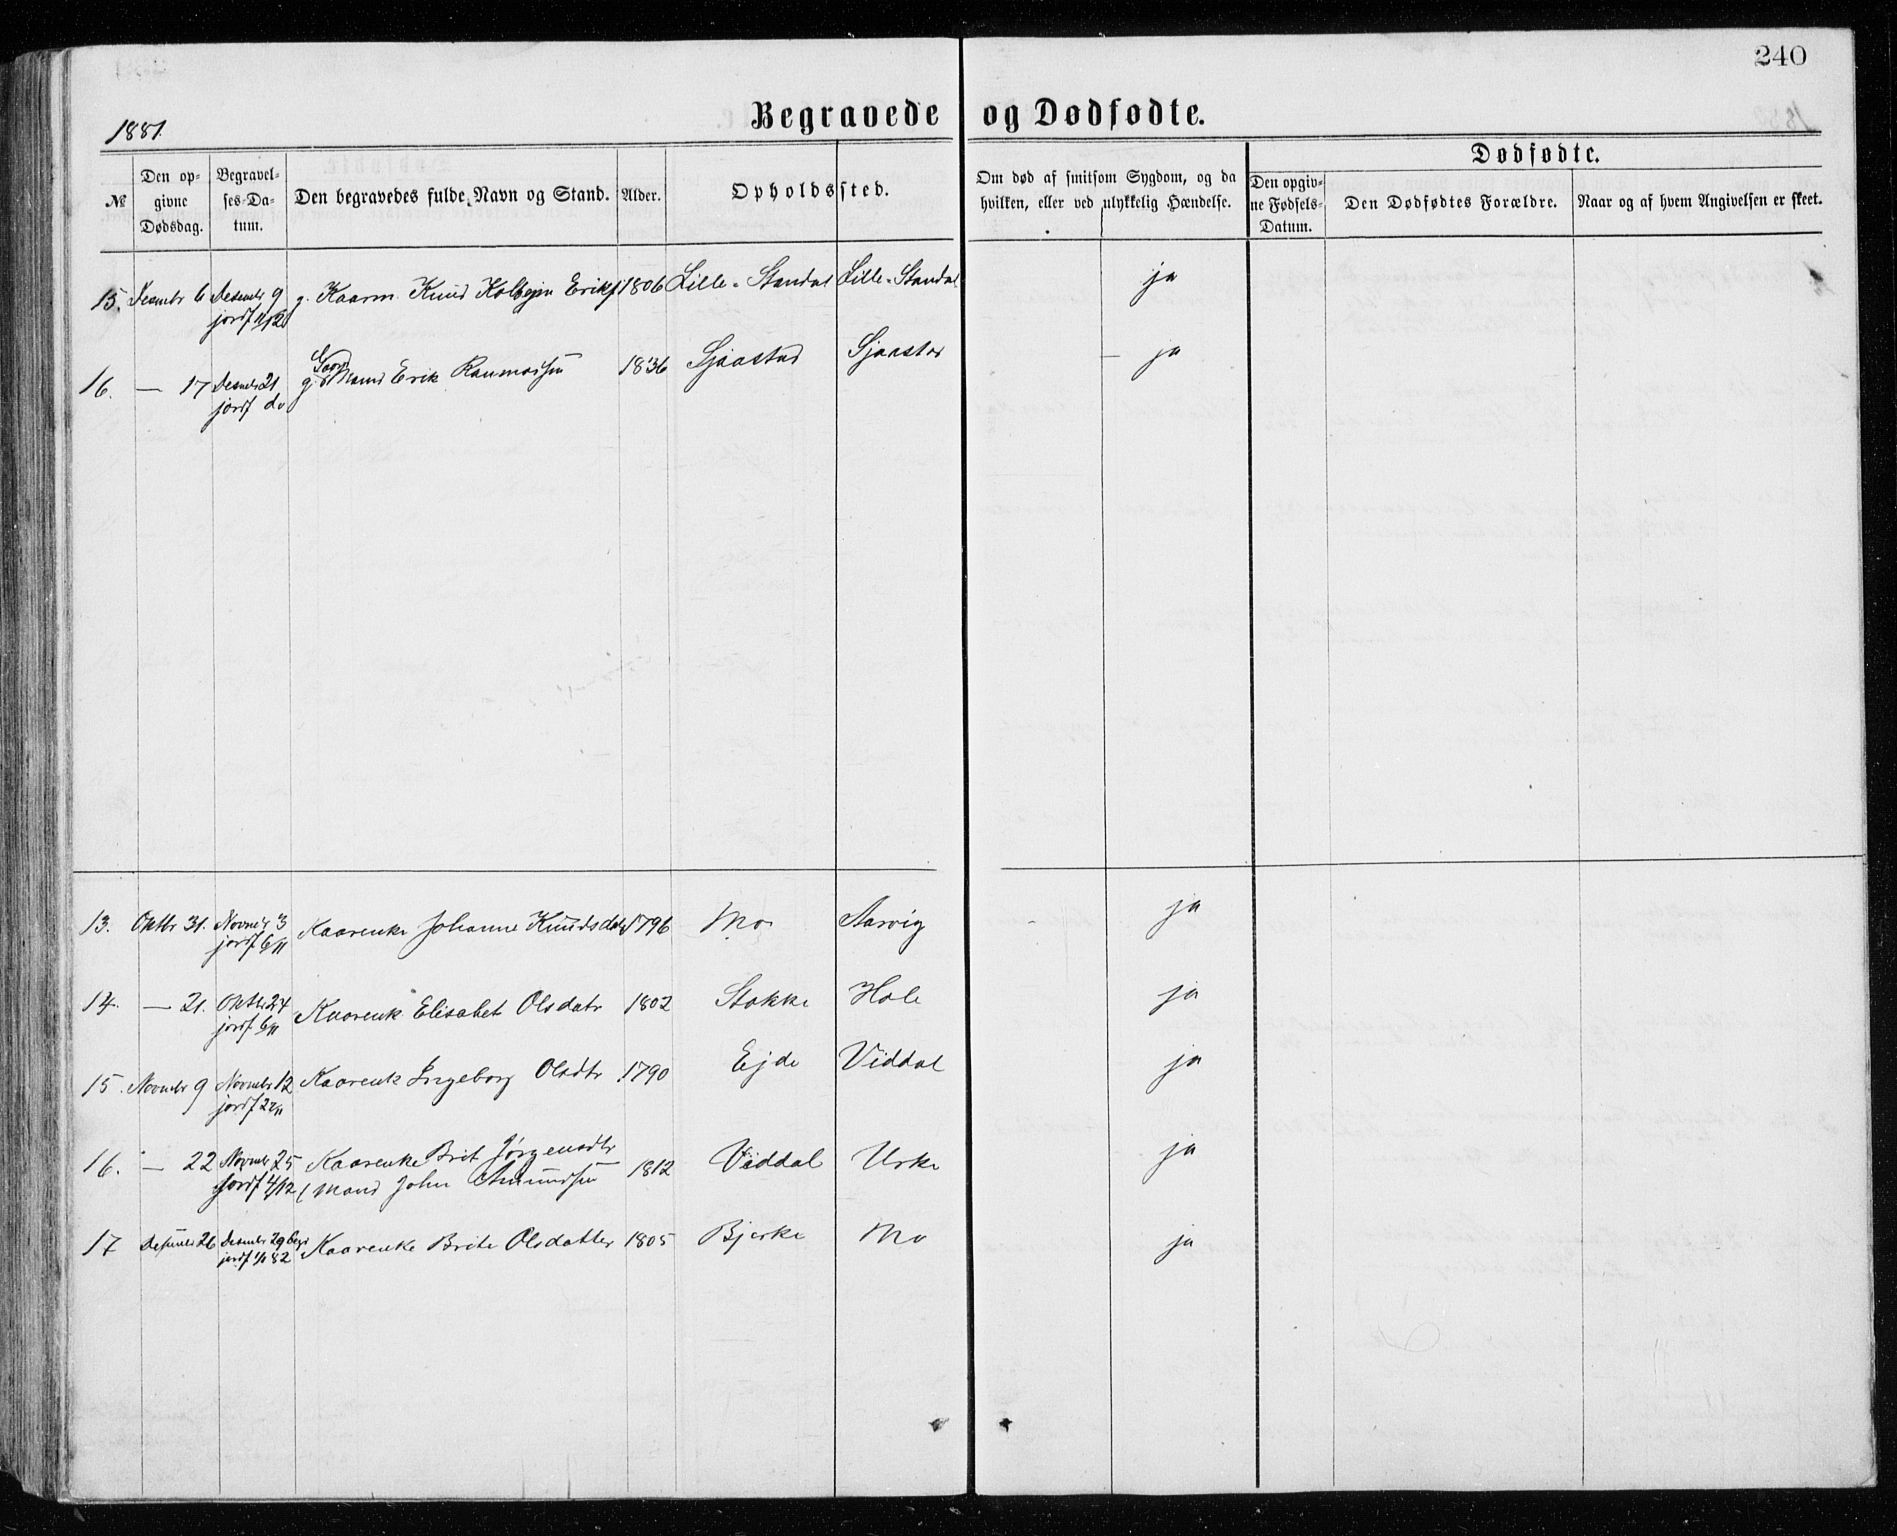 240
1881.
Begravede og Dødfødte.
№
Den opgivne Dødsdag.
Begravelses-Datum.
Den begravedes fulde Navn og Stand.
Alder.
Opholdssted.
Om død af smitsom Sygdom, og da hvilken, eller ved ulykkelig Hændelse.
Dødfødte.
Den opgivne Fødsels-Datum.
Den Dødfødtes Forældre.
Naar og af hvem Angivelsen er skeet.
15. Desembr 6 Desembr 9 g. Kaarm. Knud Kolbejn Eriks 1806 Lille-Standal Lille-Standal ja
jordf 11/12
16. — 17 Desembr 21 g. Gaardmand Erik Rasmussen 1836 Sjaastad Sjaastad — ja
jordf do
13. Oktbr 31. Novmbr 3 Kaarenke Johanne Knudsdatr 1796 Mo Aarvig ja
jordf 6/11
14. — 21. Oktbr 24 Kaarenk Elisabet Olsdatr 1802 Stokke Hole ja
jordf 6/11
15. Novmbr 9 Novmbr 12 Kaarenk Ingeborg Olsdtr 1790 Ejde Viddal ja
jordf
16. — 22 Novmbr 25 Kaarenke Brit Jørgensdtr 1812 Viddal Urke ja
jordf 4/12 (Mand John Amundsen
17 Desember 26 Desembr 29 Kaarenke Brite Olsdatter 1805 Bjerke Mo ja
jordf 82